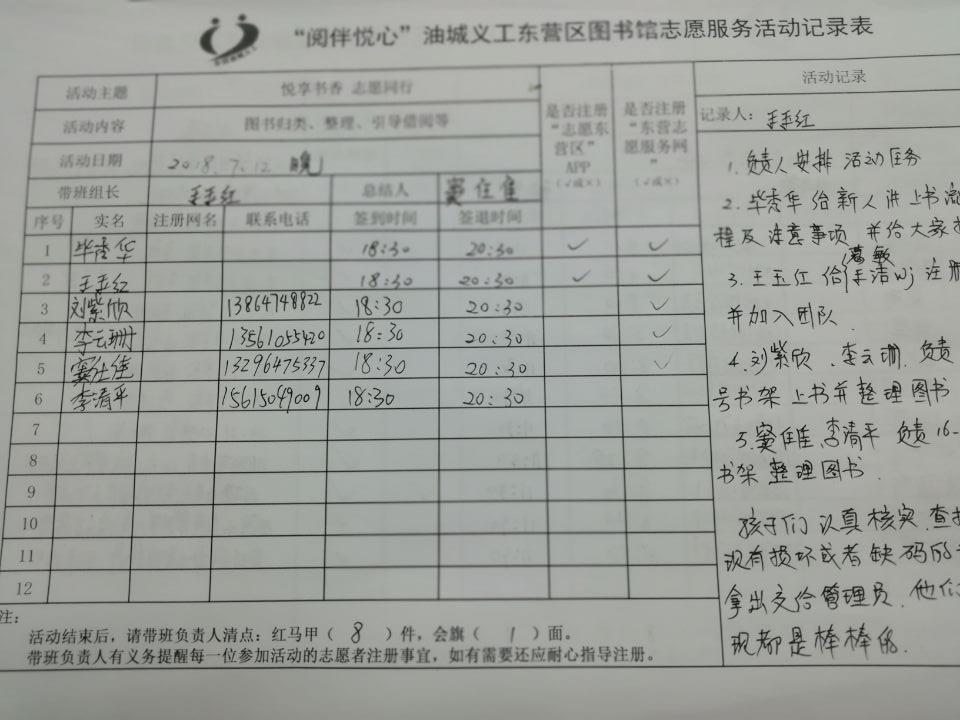 “阅伴悦心”油城义工东营区图书馆志愿服务活动记录表
活动主题 悦享书香 志愿同行
活动内容 图书归类、整理、引导借阅等
活动日期 2018.7.12 晚
带班组长 王玉红 总结人 窦仕佳
是否注册“志愿东营区”APP（√或×）
是否注册“东营志愿服务网”（√或×）
序号 实名 注册网名 联系电话 签到时间 签退时间
1 毕秀华 18:30 20:30 ✓ ✓
2 王玉红 18:30 20:30 ✓ ✓
3 刘紫欣 13864748822 18:30 20:30 ✓
4 李云珊 13561055420 18:30 20:30 ✓
5 窦仕佳 13296475337 18:30 20:30 ✓
6 李清平 15615049009 18:30 20:30
7
8
9
10
11
12
注：
活动结束后，请带班负责人清点：红马甲（8）件，会旗（1）面。
带班负责人有义务提醒每一位参加活动的志愿者注册事宜，如有需要还应耐心指导注册。
活动记录
记录人：王玉红
1.负责人安排活动任务
2.毕秀华给新人讲上书流
程及注意事项，并给大家
3.王玉红给 注册
并加入团队.
4.刘紫欣、李云珊 负责
号书架上书并整理图书
5.窦仕佳、李清平 负责16-
书架整理图书.
孩子们认真核实、查
现有损坏或者缺码的
拿出交给管理员，他们
现都是棒棒的.